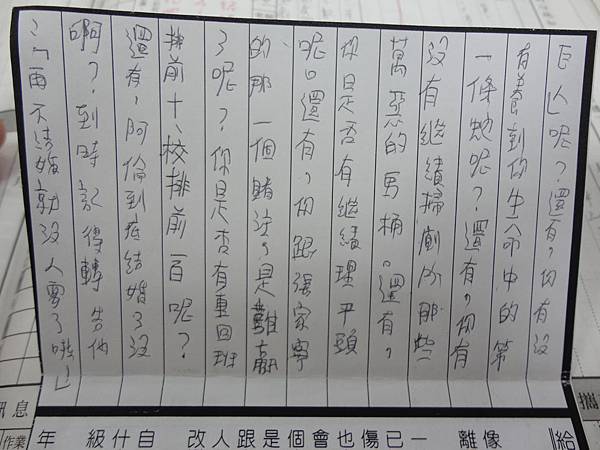 巨人呢？還有，你有沒
有養到你生命中的第
一條魷呢？還有，你有
沒有繼續掃廁所那些
萬惡的馬桶。還有，
你是否有繼續理平頭
呢？還有，你跟張家寧
的那一個賭注，是誰贏
了呢？你是否有重回班
排前十、校排前百呢？
還有，阿倫到底結婚了沒
啊？到時記得轉告他
：「再不結婚就沒人要了哦！」
給
像 離 一 已傷也會個是跟人改 什自 級 年
訊息
作業
攜